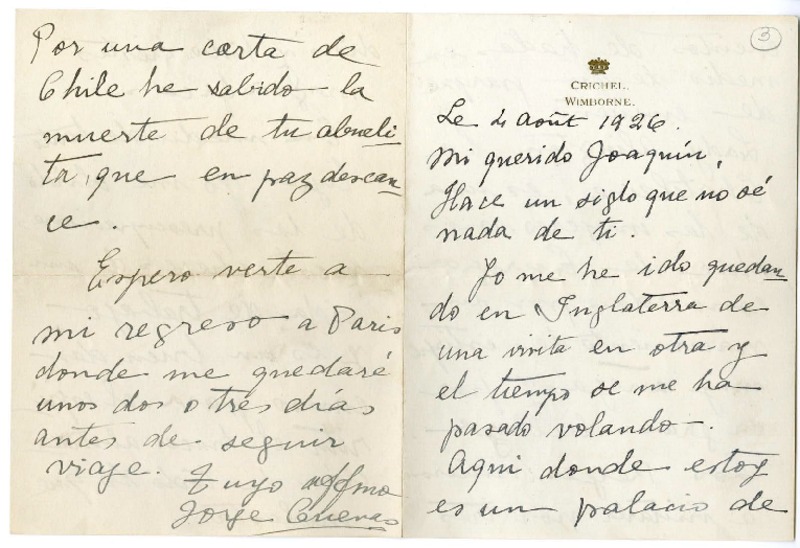 Por una carta de
Chile he sabido - la
muerte de tu abueli-
ta, que en paz descan-
ce.
Espero verte a -
mi regreso a Paris
donde me quedaré
unos dos o tres días
antes de seguir
viaje.
Tuyo affmo
Jorge Cuevas
3
CRICHEL.
WIMBORNE.
Le 4 Août 1926.
Mi querido Joaquín,
Hace un siglo que no sé
nada de ti.
Yo me he ido quedan-
do en Inglaterra de
una visita en otra y
el tiempo se me ha -
pasado volando -.
Aqui donde estoy
es un palacio de